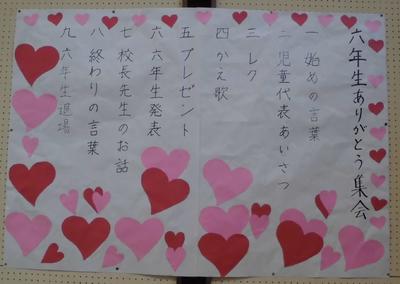 六年生ありがとう集会
一 始めの言葉
二 児童代表あいさつ
三 レク
四 かえ歌
五 プレゼント
六 六年生発表
七 校長先生のお話
八 終わりの言葉
九 六年生退場